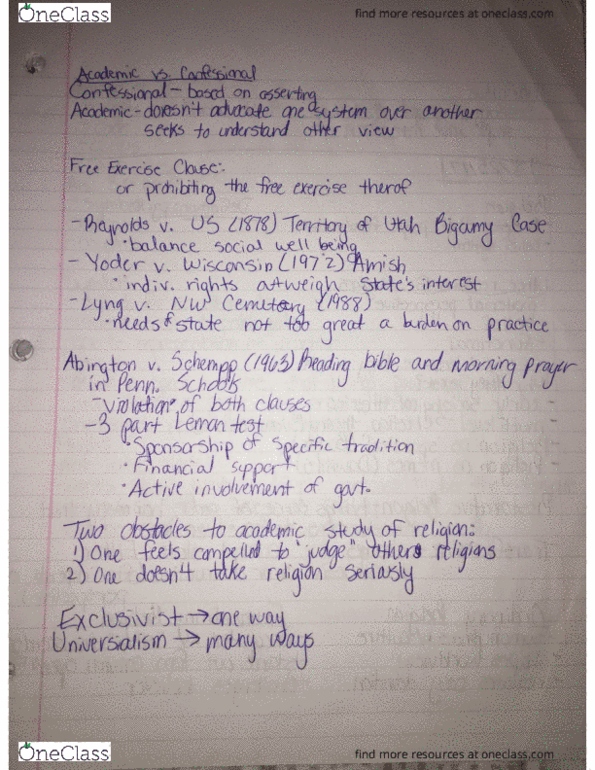 OneClass
find more resources at oneclass.com
Academic vs. Confessional
Confessional - based on asserting
Academic - doesn't advocate one system over another
seeks to understand other view
Free Exercise Clause:
or prohibiting the free exercise therof
- Reynolds v. US (1878) Territory of Utah Bigamy Case
• balance social well being
- Yoder v. Wisconsin (1972) Amish
• indiv. rights outweigh State's interest
- Lyng v. NW Cemetery (1988)
• needs of state not too great a burden on practice
Abington v. Schempp (1963) Reading bible and morning prayer
in Penn. Schools
- violation of both clauses
- 3 part Leman test
• Sponsorship of specific tradition
• Financial support
• Active involvement of govt.
Two obstacles to academic study of religion:
1) One feels compelled to "judge" others religions
2) One doesn't take religion seriously
Exclusivist → one way
Universalism → many ways
OneClass
find more resources at oneclass.com